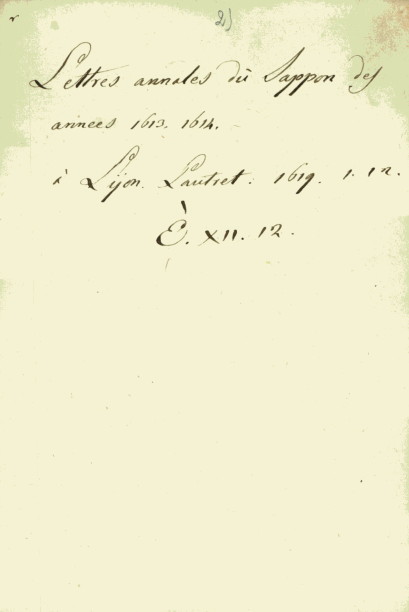 2)
Lettres annales du Jappon des
annees 1613. 1614.
à Lÿon. Lautret. 1619. 1. 12.
E. XII. 12.